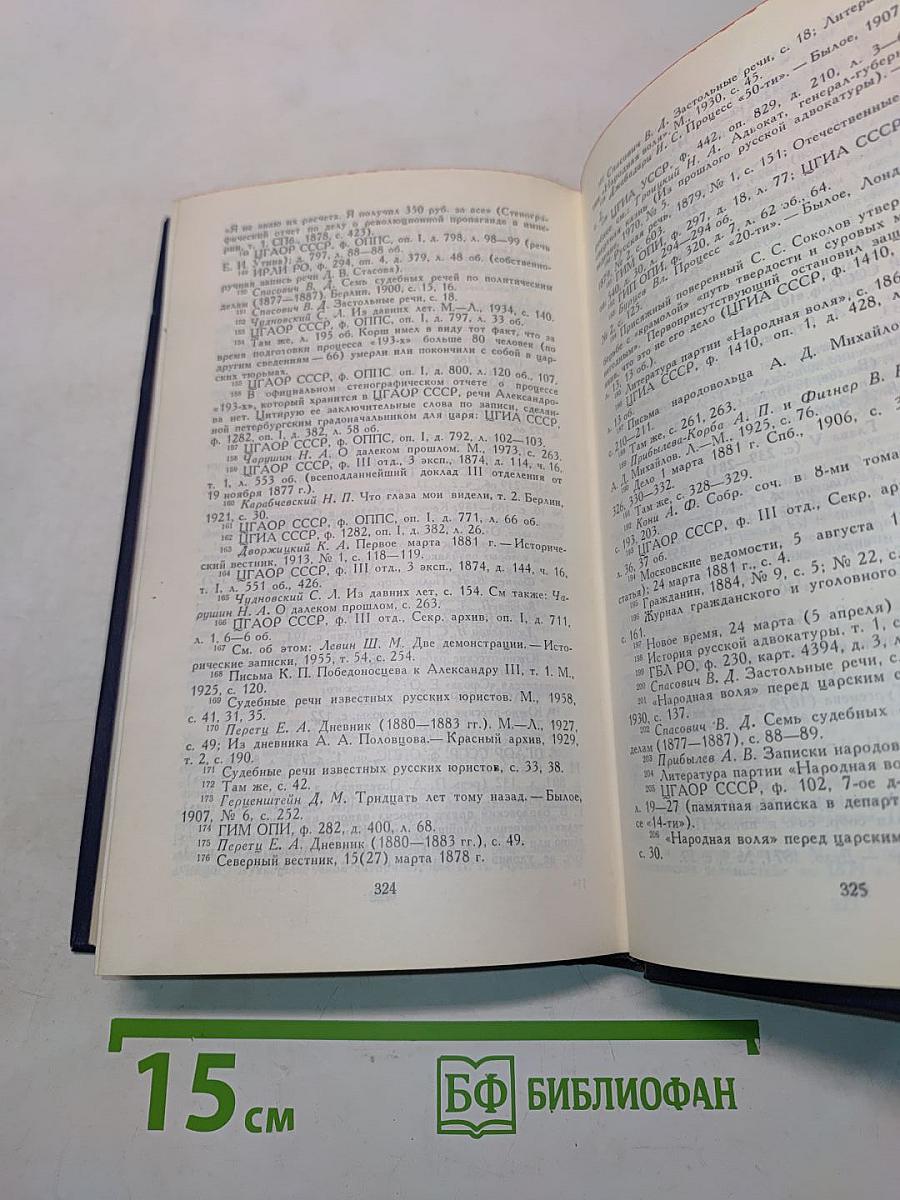 «Я не знаю их расчета. Я получил 350 руб. за все» (Стеногра-
фический отчет по делу о революционной пропаганде в импе-
рии, т. 1. СПб., 1878, с. 423).
ЦГАОР СССР, ф. ОППС, оп. I, д. 798, л. 98—99 (речь
Е. И. Утина); д. 797, л. 88—88 об.
ИРЛИ РО, ф. 294, оп. 4, д. 379, л. 48 об. (собственно-
ручная запись речи Д. В. Стасова).
150 Спасович В. Д. Семь судебных речей по политическим
делам (1877—1887), Берлин, 1900, с. 15, 16.
151 Спасович В. Д. Застольные речи, с. 18.
152 Чудновский С. Л. Из давних лет. М.—Л., 1934, с. 140.
153 ЦГАОР СССР, ф. ОППС, оп. 1, д. 797, л. 33 об.
154 Там же, л. 195 об. Корш имел в виду тот факт, что за
время подготовки процесса «193-х» больше 80 человек (по
другим сведениям — 66) умерли или покончили с собой в цар-
ских тюрьмах.
155 ЦГАОР СССР, ф. ОППС оп. I, д. 800, л. 120 об., 107.
156 В официальном стенографическом отчете о процессе
«193-х», который хранится в ЦГАОР СССР, речи Александро-
ва нет. Цитирую ее заключительные слова по записи, сделан-
ной петербургским градоначальником для царя: ЦГИА СССР,
ф. 1282, оп. I, д. 382, л. 58 об.
157 ЦГАОР СССР, ф. ОППС, оп. I, д. 792, л. 102—103.
158 Чарушин Н. А. О далеком прошлом. М., 1973, с. 263.
159 ЦГАОР СССР, ф. III отд., 3 эксп., 1874, д. 114, ч. 16,
т. 1, л. 553 об. (всеподданнейший доклад III отделения от
19 ноября 1877 г.).
160 Карабчевский Н. П. Что глаза мои видели, т. 2. Берлин,
1921, с. 30.
161 ЦГАОР СССР, ф. ОППС, оп. I, д. 771, л. 66 об.
162 ЦГИА СССР, ф. 1282, оп. I, д. 382, л. 26.
163 Дворжицкий К. А. Первое марта 1881 г. — Историче-
ский вестник, 1913, № 1, с. 118—119.
164 ЦГАОР СССР, ф. III отд., 3 эксп., 1874, д. 144, ч. 16,
т. I, л. 551 об., 426.
165 Чудновский С. Л. Из давних лет, с. 154. См. также: Ча-
рушин Н. А. О далеком прошлом, с. 263.
166 ЦГАОР СССР, ф. III отд., Секр. архив, оп. I, д. 711,
л. 1, 6—6 об.
167 См. об этом: Левин Ш. М. Две демонстрации. — Исто-
рические записки, 1955, т. 54, с. 254.
168 Письма К. П. Победоносцева к Александру III, т. 1. М.,
1925, с. 120.
169 Судебные речи известных русских юристов. М., 1958,
с. 41, 31, 35.
170 Перетц Е. А. Дневник (1880—1883 гг.). М.—Л., 1927,
с. 49; Из дневника А. А. Половцова.— Красный архив, 1929,
т. 2, с. 190.
171 Судебные речи известных русских юристов, с. 33, 38.
172 Там же, с. 42.
173 Герценштейн Д. М. Тридцать лет тому назад. — Былое,
1907, № 6, с. 252.
174 ГИМ ОПИ, ф. 282, д. 400, л. 68.
175 Перетц Е. А. Дневник (1880—1883 гг.), с. 49.
176 Северный вестник, 15(27) марта 1878 г.
324
Спасович В. Д. Застольные речи, с. 18; Литера
«Народная воля». М., 1930, с. 45.
Джабадари И. С. Процесс «50-ти». — Былое, 1907
ЦГИА УССР, ф. 442, оп. 829, д. 210, л. 3—
Троицкий Н. А. Адвокат, генерал-губерн
1970, № 5. (Из прошлого русской адвокатуры). —
Русская речь, 1879, № 1, с. 151; Отечественные
ГИМ ОПИ, ф. 297, д. 18, л. 77; ЦГИА СССР
л. 294—294 об.
ГИМ ОПИ, ф. 320, д. 7, л. 62 об., 64.
Бурцев Вл. Процесс «20-ти». — Былое, Лонд
Присяжный поверенный С. С. Соколов утвер
с «крамолой» «путь твердости и суровых м
Первоприсутствующий остановил защ
что это не его дело (ЦГИА СССР, ф. 1410,
л. 13, 13 об.).
Литература партии «Народная воля», с. 186
ЦГИА СССР, ф. 1410, оп. 1, д. 428, л.
13 об.
Письма народовольца А. Д. Михайло
с. 210—211.
Там же, с. 261, 263.
Прибылева-Корба А. П. и Фигнер В. Н
А. Д. Михайлов. Л.—М., 1925, с. 76.
Дело 1 марта 1881 г. Спб., 1906, с. 3
326, 330—332.
Там же, с. 328—329.
192 Кони А. Ф. Собр. соч. в 8-ми тома
с. 193, 203.
193 ЦГАОР СССР, ф. III отд., Секр. ар
л. 36, 37 об.
194 Московские ведомости, 5 августа 1
статья); 24 марта 1881 г., с. 4.
195 Гражданин, 1884, № 9, с. 5; № 22, с.
196 Журнал гражданского и уголовного
с. 161.
197 Новое время, 24 марта (5 апреля)
198 История русской адвокатуры, т. 1, с
199 ГБЛ РО, ф. 230, карт. 4394, д. 3, л
200 Спасович В. Д. Застольные речи, с.
201 «Народная воля» перед царским с
1930, с. 137.
202 Спасович В. Д. Семь судебных
делам (1877—1887), с. 88—89.
203 Прибылев А. В. Записки народов
204 Литература партии «Народная во
205 ЦГАОР СССР, ф. 102, 7-ое д-
л. 19—27 (памятная записка в департ
се «14-ти»).
206 «Народная воля» перед царским
с. 30.
325
15 см
БФ БИБЛИОФАН